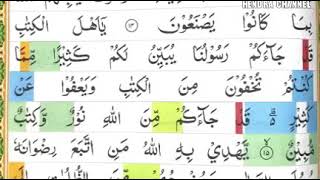 HENDRA CHANNEL
بِمَا كَانُوْا يَصْنَعُوْنَ ١٤ يٰٓاَهْلَ الْكِتٰبِ
قَدْ جَاۤءَكُمْ رَسُوْلُنَا يُبَيِّنُ لَكُمْ كَثِيْرًا مِّمَّا
كُنْتُمْ تُخْفُوْنَ مِنَ الْكِتٰبِ وَيَعْفُوْا عَنْ
كَثِيْرٍ ەۗ قَدْ جَاۤءَكُمْ مِّنَ اللّٰهِ نُوْرٌ وَّكِتٰبٌ
مُّبِيْنٌ ١٥ يَّهْدِيْ بِهِ اللّٰهُ مَنِ اتَّبَعَ رِضْوَانَهٗ